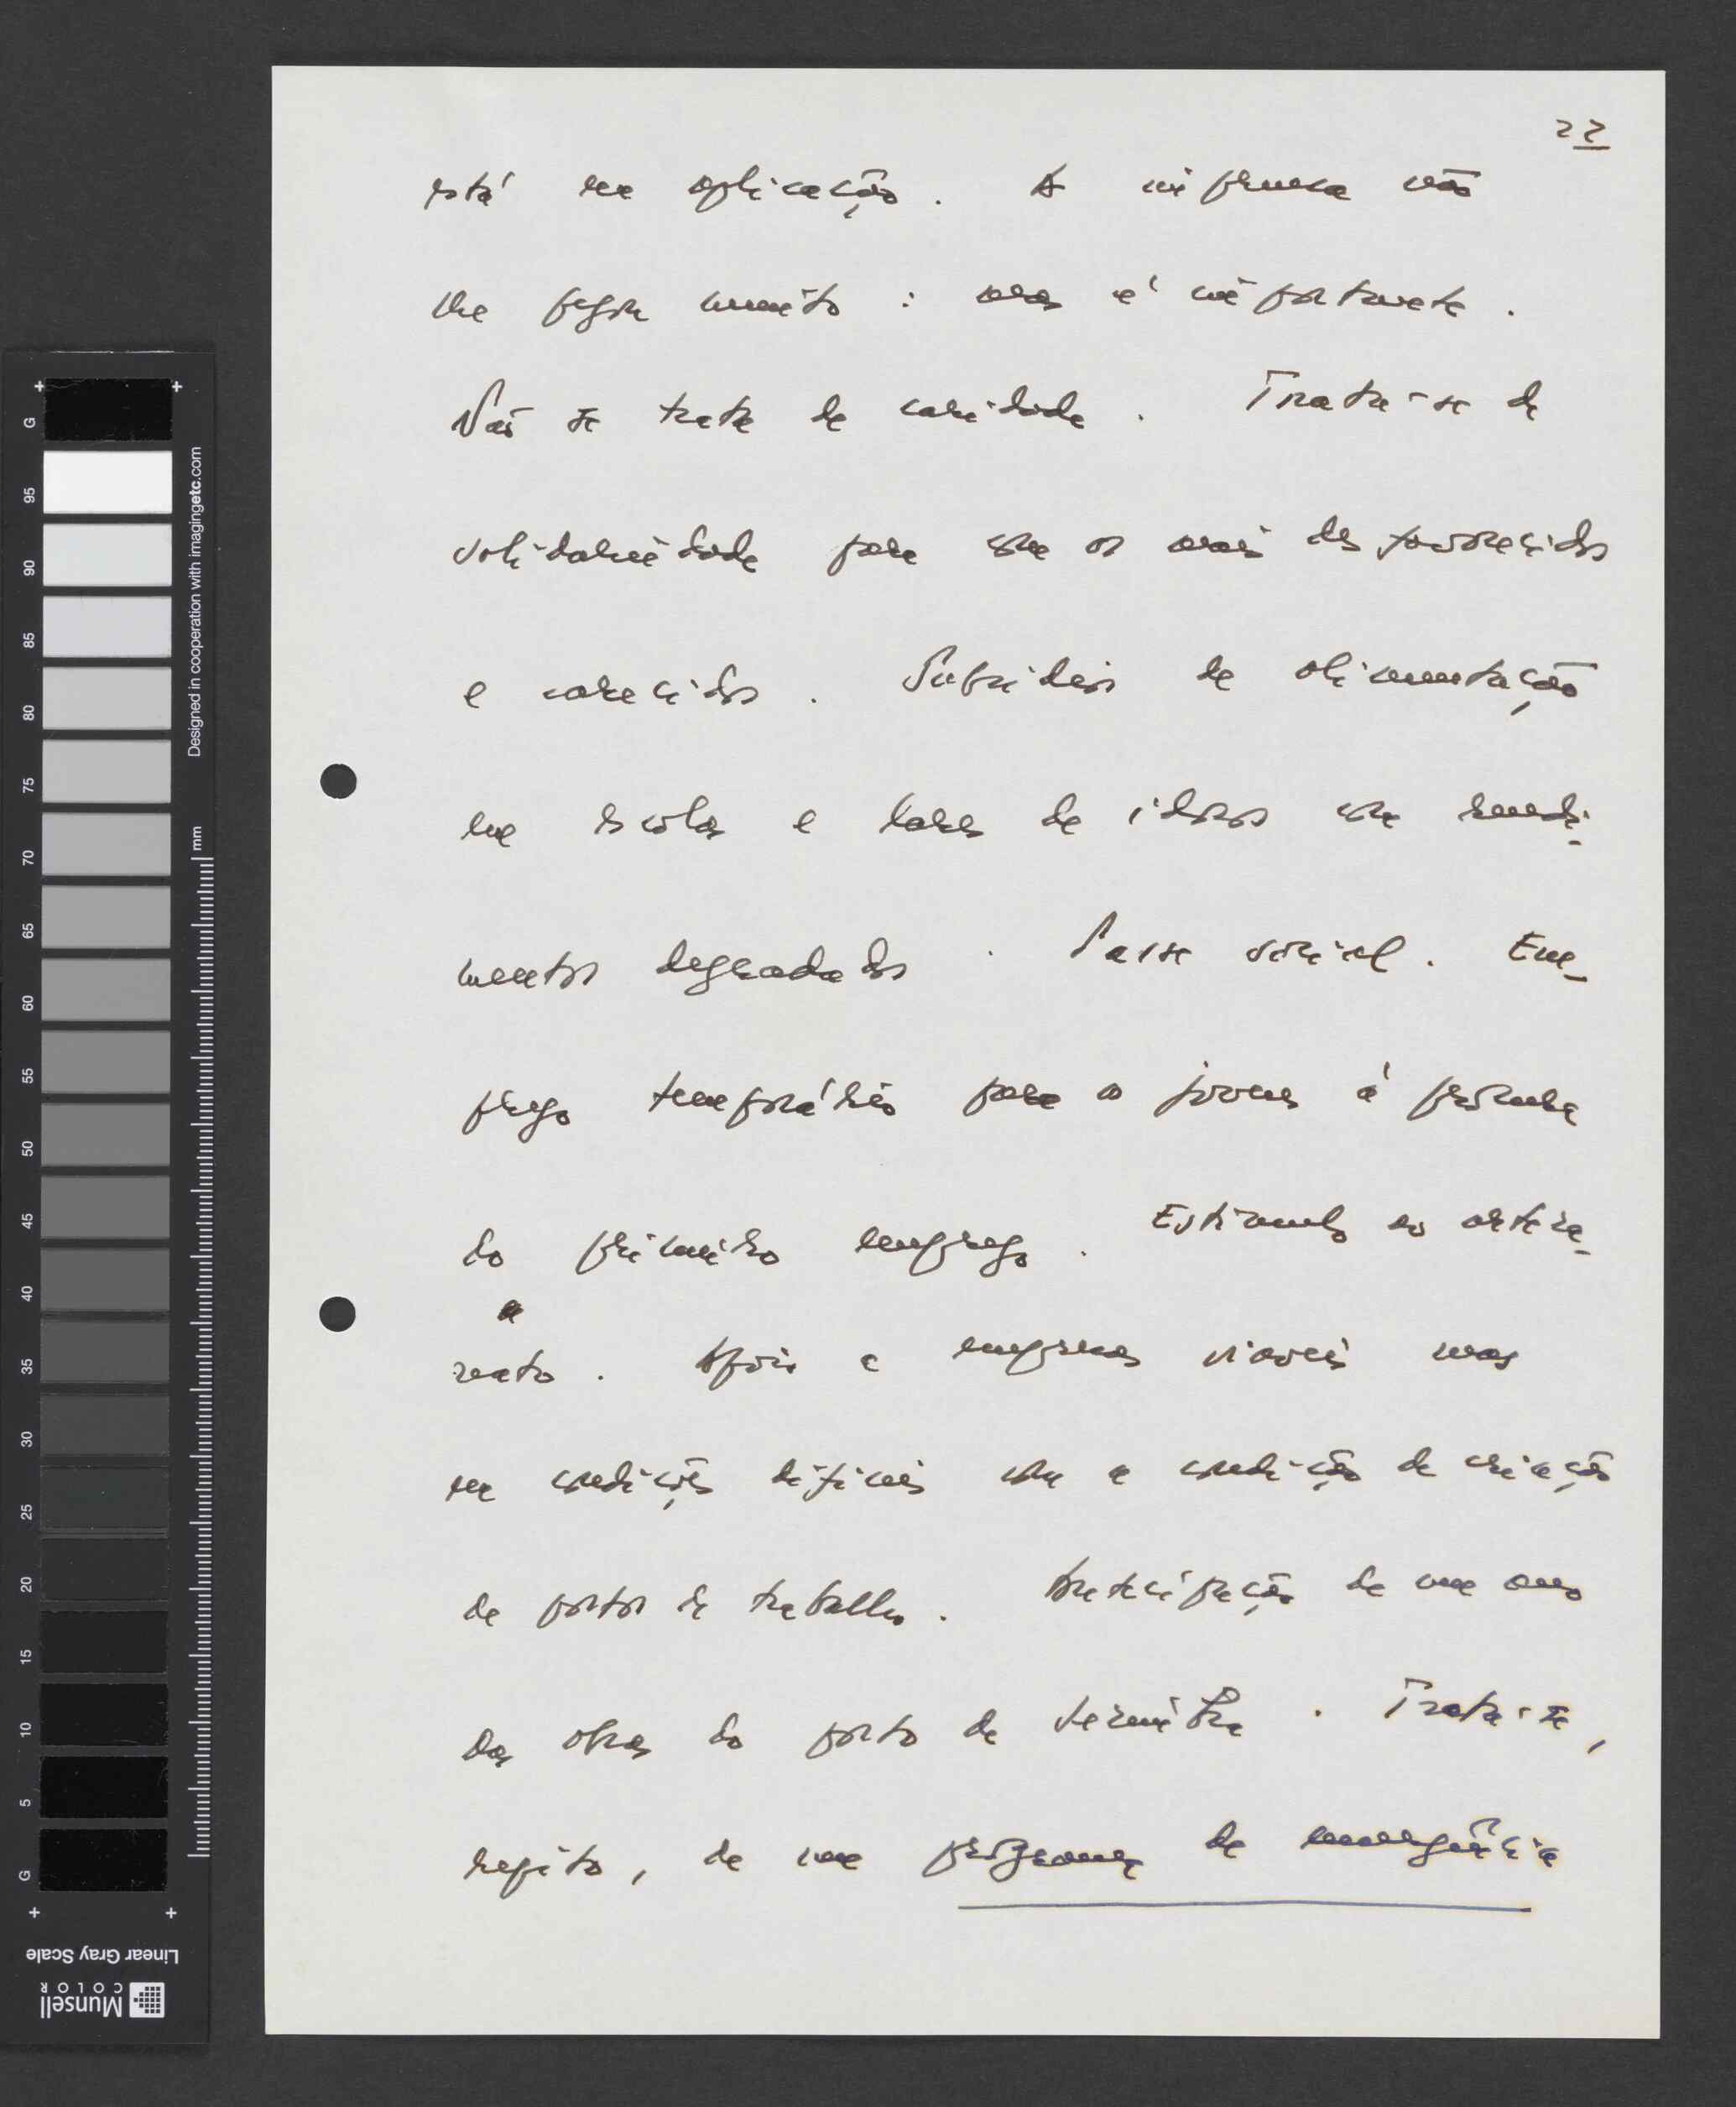 22
está em aplicação. A imprensa não
lhe pegou muito: mas é importante.
Não se trata de caridade. Trata-se de
solidariedade para com os mais desfavorecidos
e carecidos. Subsídios de alimentação
em escolas e lares de idosos com rendi-
mentos degradados. Passe social. Em-
prego temporário para os jovens à procura
do primeiro emprego. Estímulo ao artesa-
nato. Apoio a empresas viáveis mas
em condições difíceis com a condição de criação
de postos de trabalho. Antecipação de um ano
das obras do porto de Sesimbra. Trata-se,
repito, de um programa de emergência
G
95
90
85
80
75
70
65
60
55
50
45
40
35
30
25
20
15
10
5
G
Designed in cooperation with imagingetc.com
mm
Linear Gray Scale
Munsell
COLOR